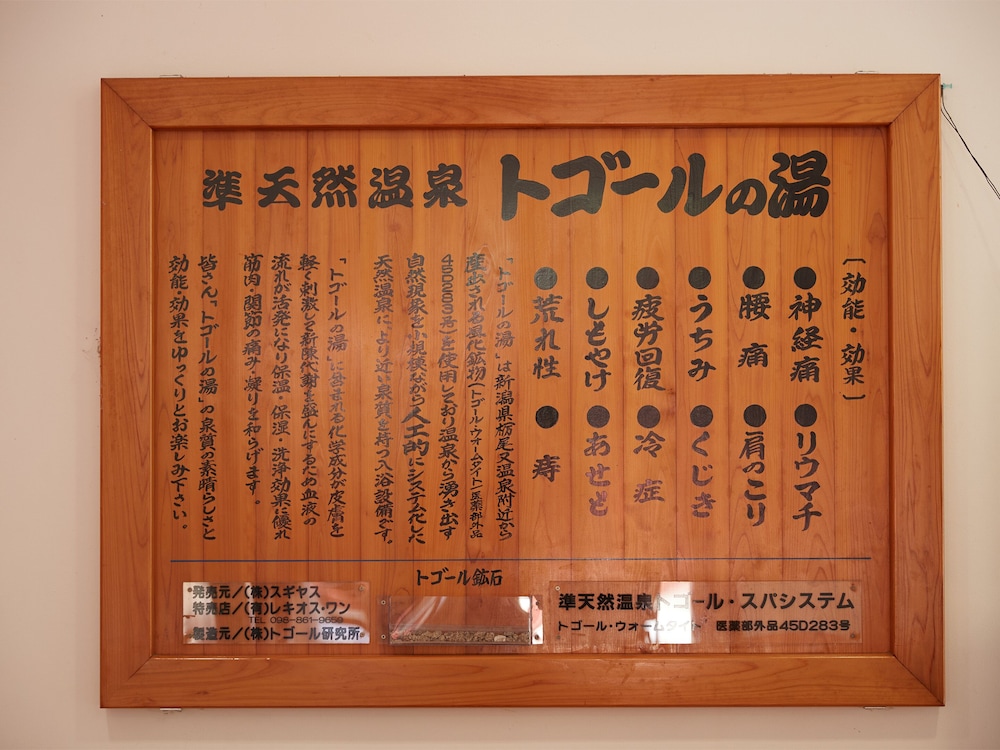 準天然温泉 トゴールの湯
〔効能・効果〕
●神経痛 ●リウマチ
●腰痛 ●肩のこり
●うちみ ●くじき
●疲労回復 ●冷症
●しもやけ ●あせも
●荒れ性 ●痔
「トゴールの湯」は新潟県栃尾又温泉附近から
産出される風化鉱物(トゴール・ウォームタイト/医薬部外品
45D283号)を使用しており温泉から湧き出す
自然現象を小規模ながら人工的にシステム化した
天然温泉により近い泉質を持つ入浴設備です。
「トゴールの湯」に含まれる化学成分が皮膚を
軽く刺激し新陳代謝を盛んにするため血液の
流れが活発になり保温・保湿・洗浄効果に優れ
筋肉・関節の痛み・凝りを和らげます。
皆さん「トゴールの湯」の泉質の素晴らしさと
効能・効果をゆっくりとお楽しみ下さい。
トゴール鉱石
発売元/(株)スギヤス
特売店/(有)レキオス・ワン
TEL 098-861-9659
製造元/(株)トゴール研究所
準天然温泉トゴール・スパシステム
トゴール・ウォームタイト 医薬部外品45D283号